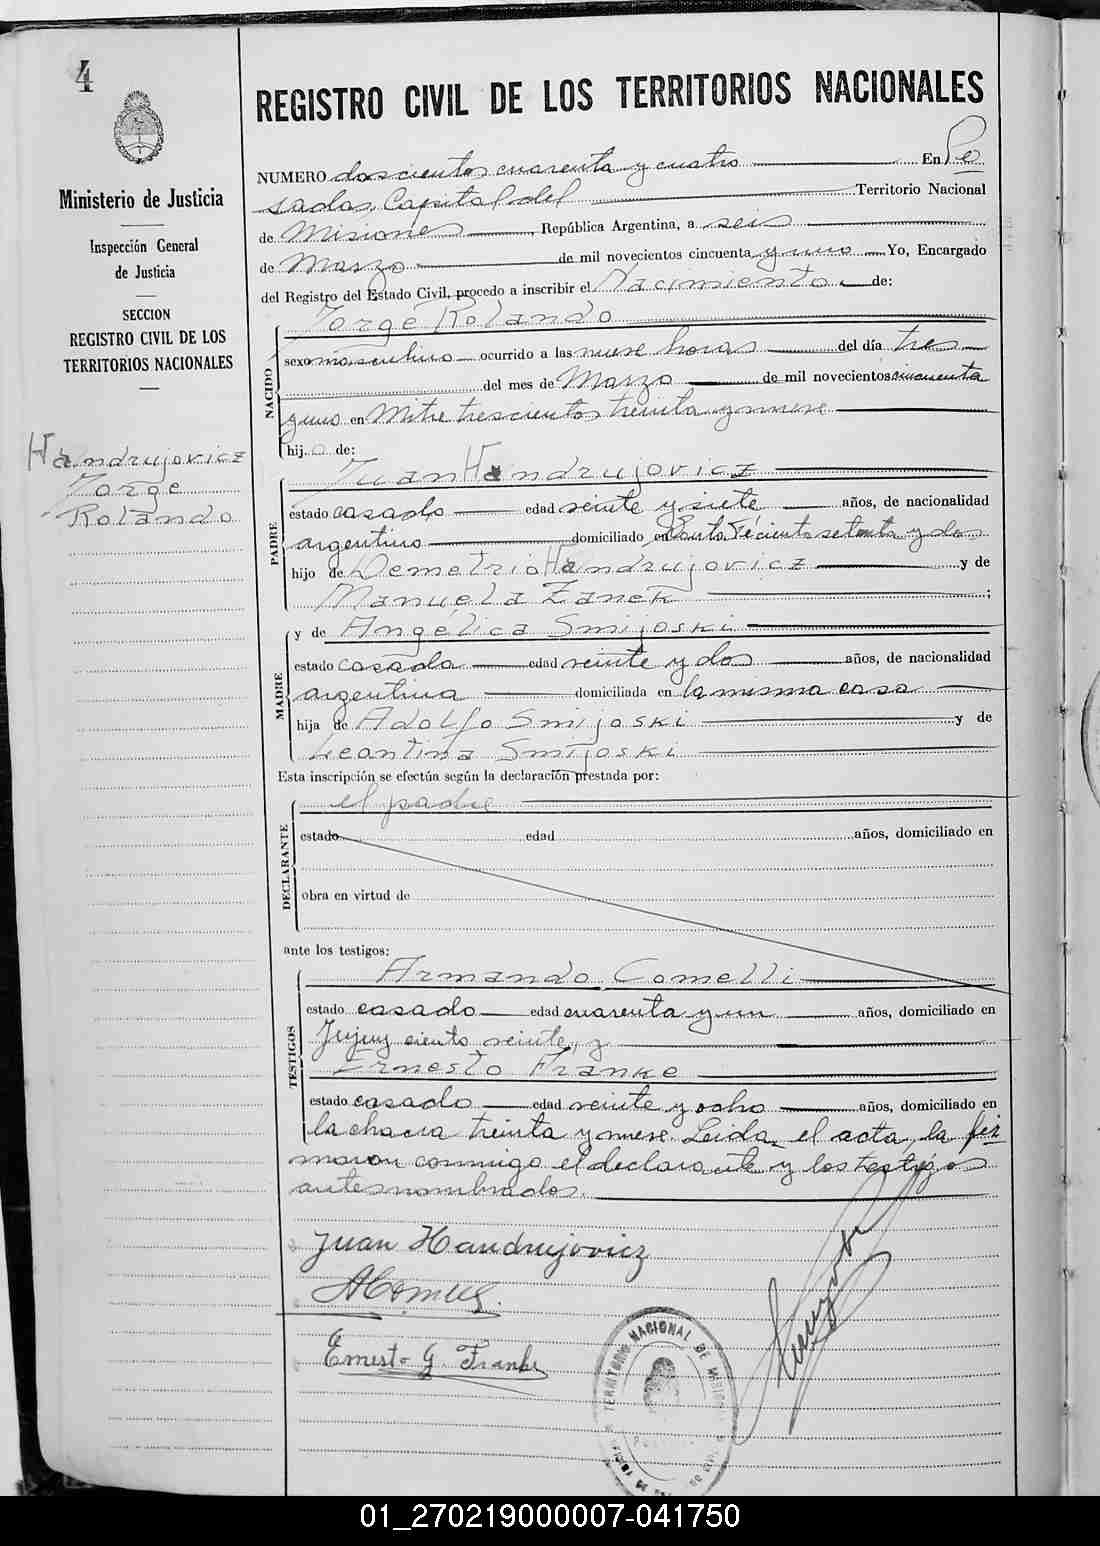 4
REGISTRO CIVIL DE LOS TERRITORIOS NACIONALES
Ministerio de Justicia
Inspección General
de Justicia
SECCION
REGISTRO CIVIL DE LOS
TERRITORIOS NACIONALES
Handrujovicz
Jorge
Rolando
NUMERO doscientos cuarenta y cuatro En Po
sadas, Capital del Territorio Nacional
de Misiones, República Argentina, a seis
de Marzo de mil novecientos cincuenta y uno Yo, Encargado
del Registro del Estado Civil, procedo a inscribir el Nacimiento de:
NACIDO
Jorge Rolando
sexo masculino ocurrido a las nueve horas del día tres
del mes de Marzo de mil novecientos cincuenta
y uno en Mitre trescientos treinta y nueve
hijo de:
PADRE
Juan Handrujovicz
estado casado edad veinte y siete años, de nacionalidad
argentino domiciliado en Santa Fé ciento setenta y dos
hijo de Demetrio Handrujovicz y de
Manuela Zanek;
MADRE
y de Angélica Smijoski
estado casada edad veinte y dos años, de nacionalidad
argentina domiciliada en la misma casa
hija de Adolfo Smijoski y de
Leontina Smijoski
Esta inscripción se efectúa según la declaración prestada por:
DECLARANTE
el padre
estado edad años, domiciliado en
obra en virtud de
ante los testigos:
TESTIGOS
Armando Comelli
estado casado edad cuarenta y un años, domiciliado en
Jujuy ciento veinte, y
Ernesto Franke
estado casado edad veinte y ocho años, domiciliado en
la chacra treinta y nueve. Leida el acta, la fir
maron conmigo el declarante y los testigos
antes nombrados.
Juan Handrujovicz
AComelli
Ernesto G. Franke
TERRITORIO NACIONAL DE MISIONES
01_270219000007-041750